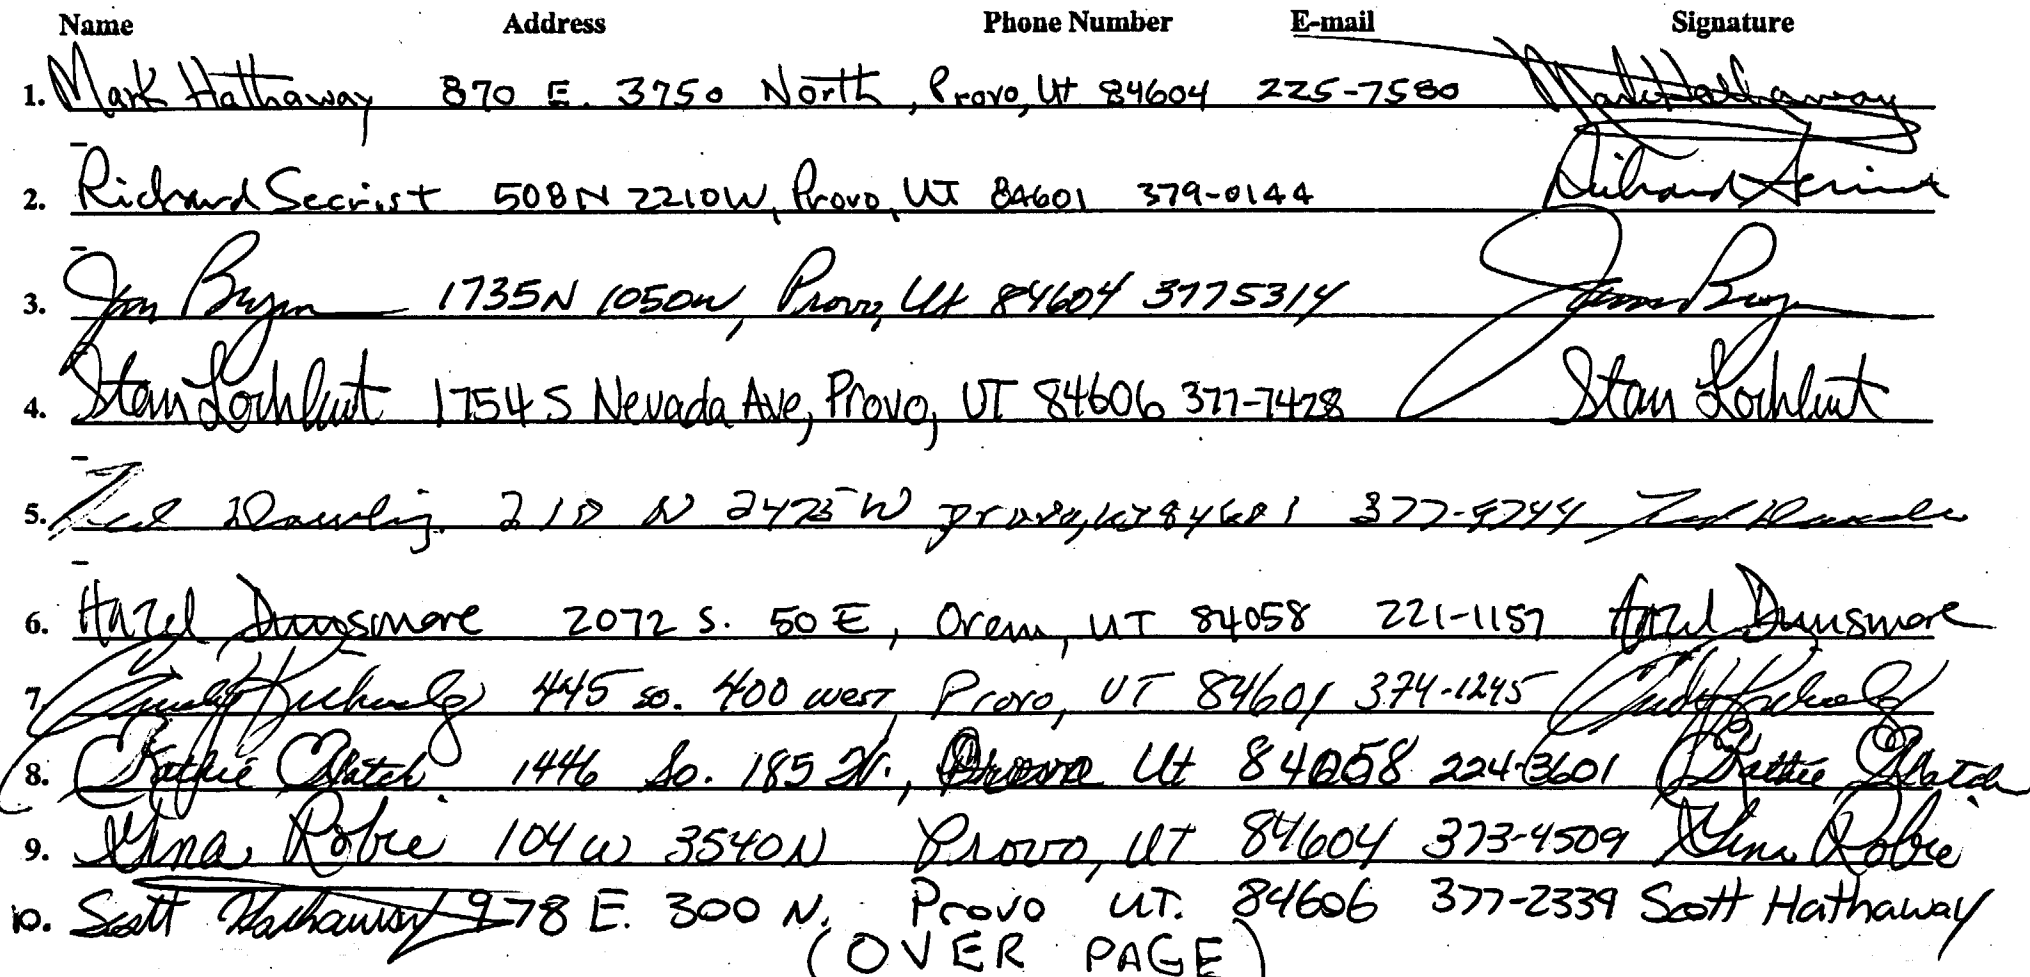 Name Address Phone Number E-mail Signature
1. Mark Hathaway 870 E. 3750 North, Provo, Ut 84604 225-7580 Mark Hathaway
2. Richard Secrist 508 N 2210 W, Provo, UT 84601 379-0144 Richard Secrist
3. 1735 N 1050 W, Provo, Ut 84604 3775314
4. Stan Lockhart 1754 S Nevada Ave, Provo, UT 84606 377-7428 Stan Lockhart
5. Ted Dowling 210 N 2475 W Provo, UT 84601 377-9744 Ted
6. Hazel Dunsmore 2072 S. 50 E, Orem, UT 84058 221-1157 Hazel Dunsmore
7. 445 so. 400 west, Provo, UT 84601 374-1245
8. Hatch 1446 So. 185 W., Ut 84058 224-3601 Hatch
9. Gina Robie 104 W 3540 N Provo, UT 84604 373-4509 Gina Robie
10. Scott Hathaway 978 E. 300 N. Provo UT. 84606 377-2339 Scott Hathaway
(OVER PAGE)